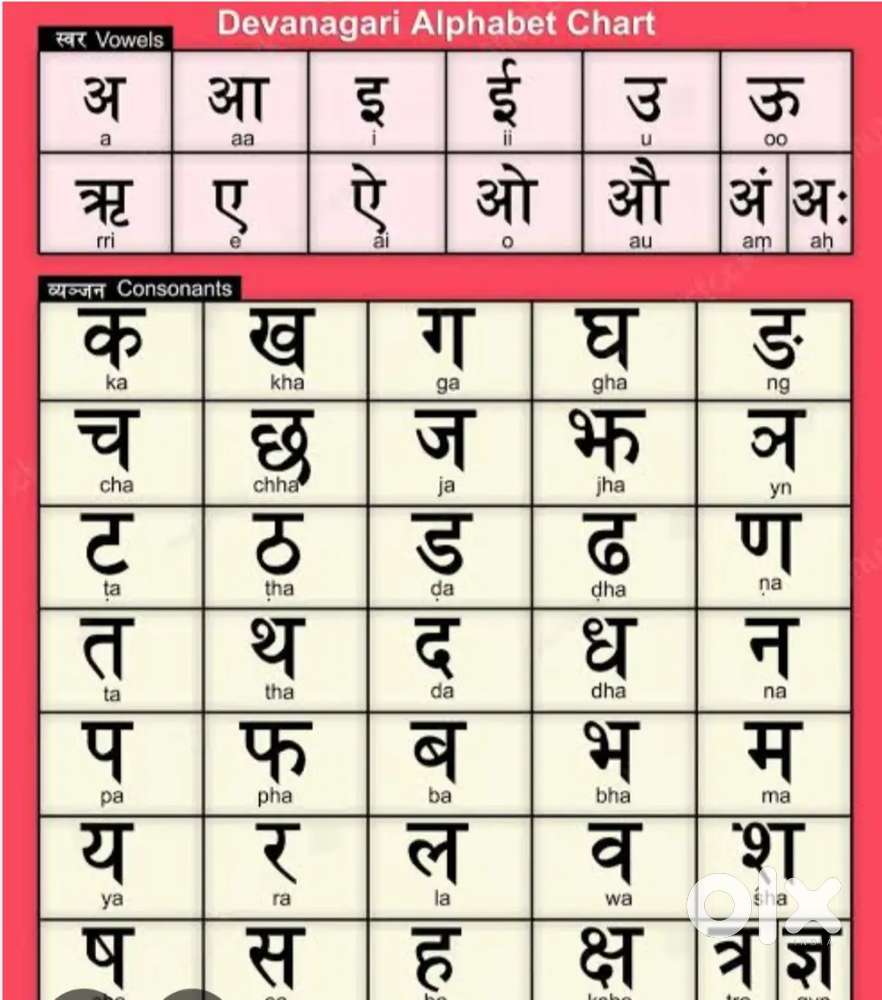 Devanagari Alphabet Chart
स्वर Vowels
अ आ इ ई उ ऊ
a aa i ii u oo
ऋ ए ऐ ओ औ अं अः
rri e ai o au aṃ aḥ
व्यञ्जन Consonants
क ख ग घ ङ
ka kha ga gha ng
च छ ज झ ञ
cha chha ja jha yn
ट ठ ड ढ ण
ṭa ṭha ḍa ḍha ṇa
त थ द ध न
ta tha da dha na
प फ ब भ म
pa pha ba bha ma
य र ल व श
ya ra la wa sha
olx
INDIA
ष स ह क्ष त्र ज्ञ